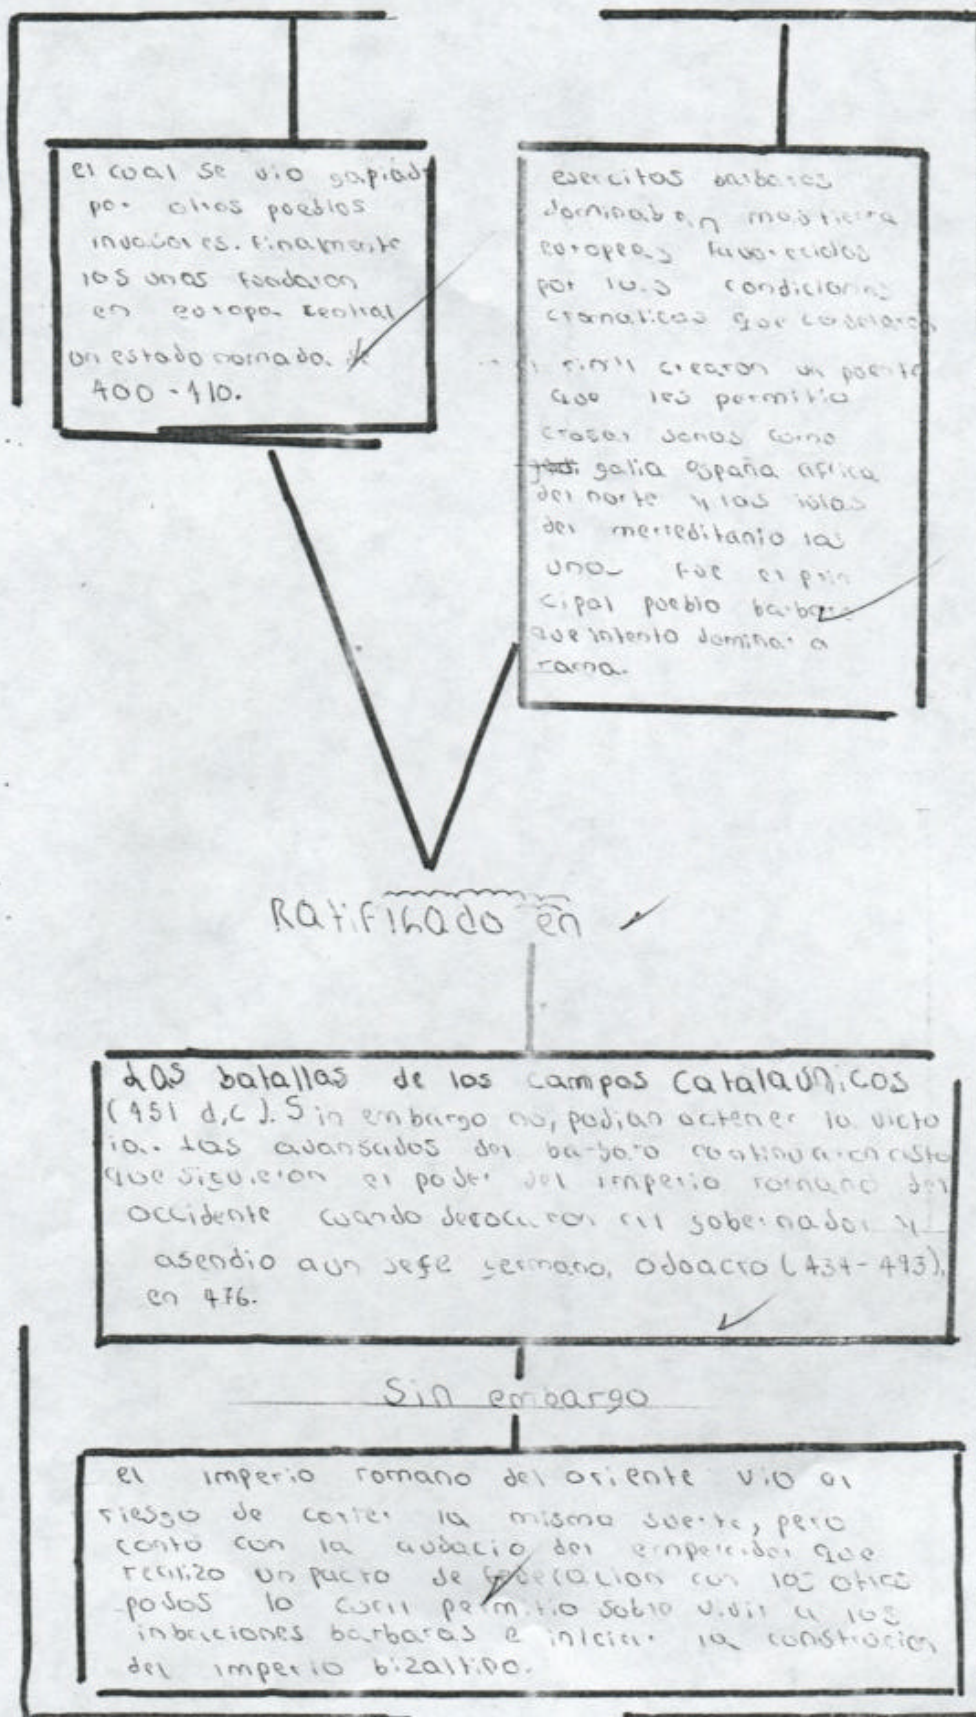 el cual se vio sapiado
por otros pueblos
invasores. Finalmente
los unos fundaron
en europa central
un estado nomado.
400 - 410.
esercitos barbaros
dominaban mas tierra
europeas favorecidos
por las condiciones
cramaticas que
crearon un puente
que les permitio
crosar senas como
galia españa africa
del norte y las islas
del merreditanio las
unos fue el prin
cipal pueblo barbaro
que intento dominar a
roma.
Ratifihado en
Las batallas de los campos Cataláunicos
(451 d.c). Sin embargo no, podian octener la victo
ia. Las avansados del barbaro continuaron
que siguieron el poder del imperio romano del
occidente cuando derocaron al gobernador y
asendio aun jefe germano, Odoacro (434-493),
en 476.
Sin embargo
el imperio romano del oriente vio al
riesgo de correr la misma suerte, pero
conto con la audacio del emperador que
realizo un pacto de federacion con los
podos lo cual permitio sobre vivir a los
inbaciones barbaras e iniciar la construcion
del imperio bizaltipo.